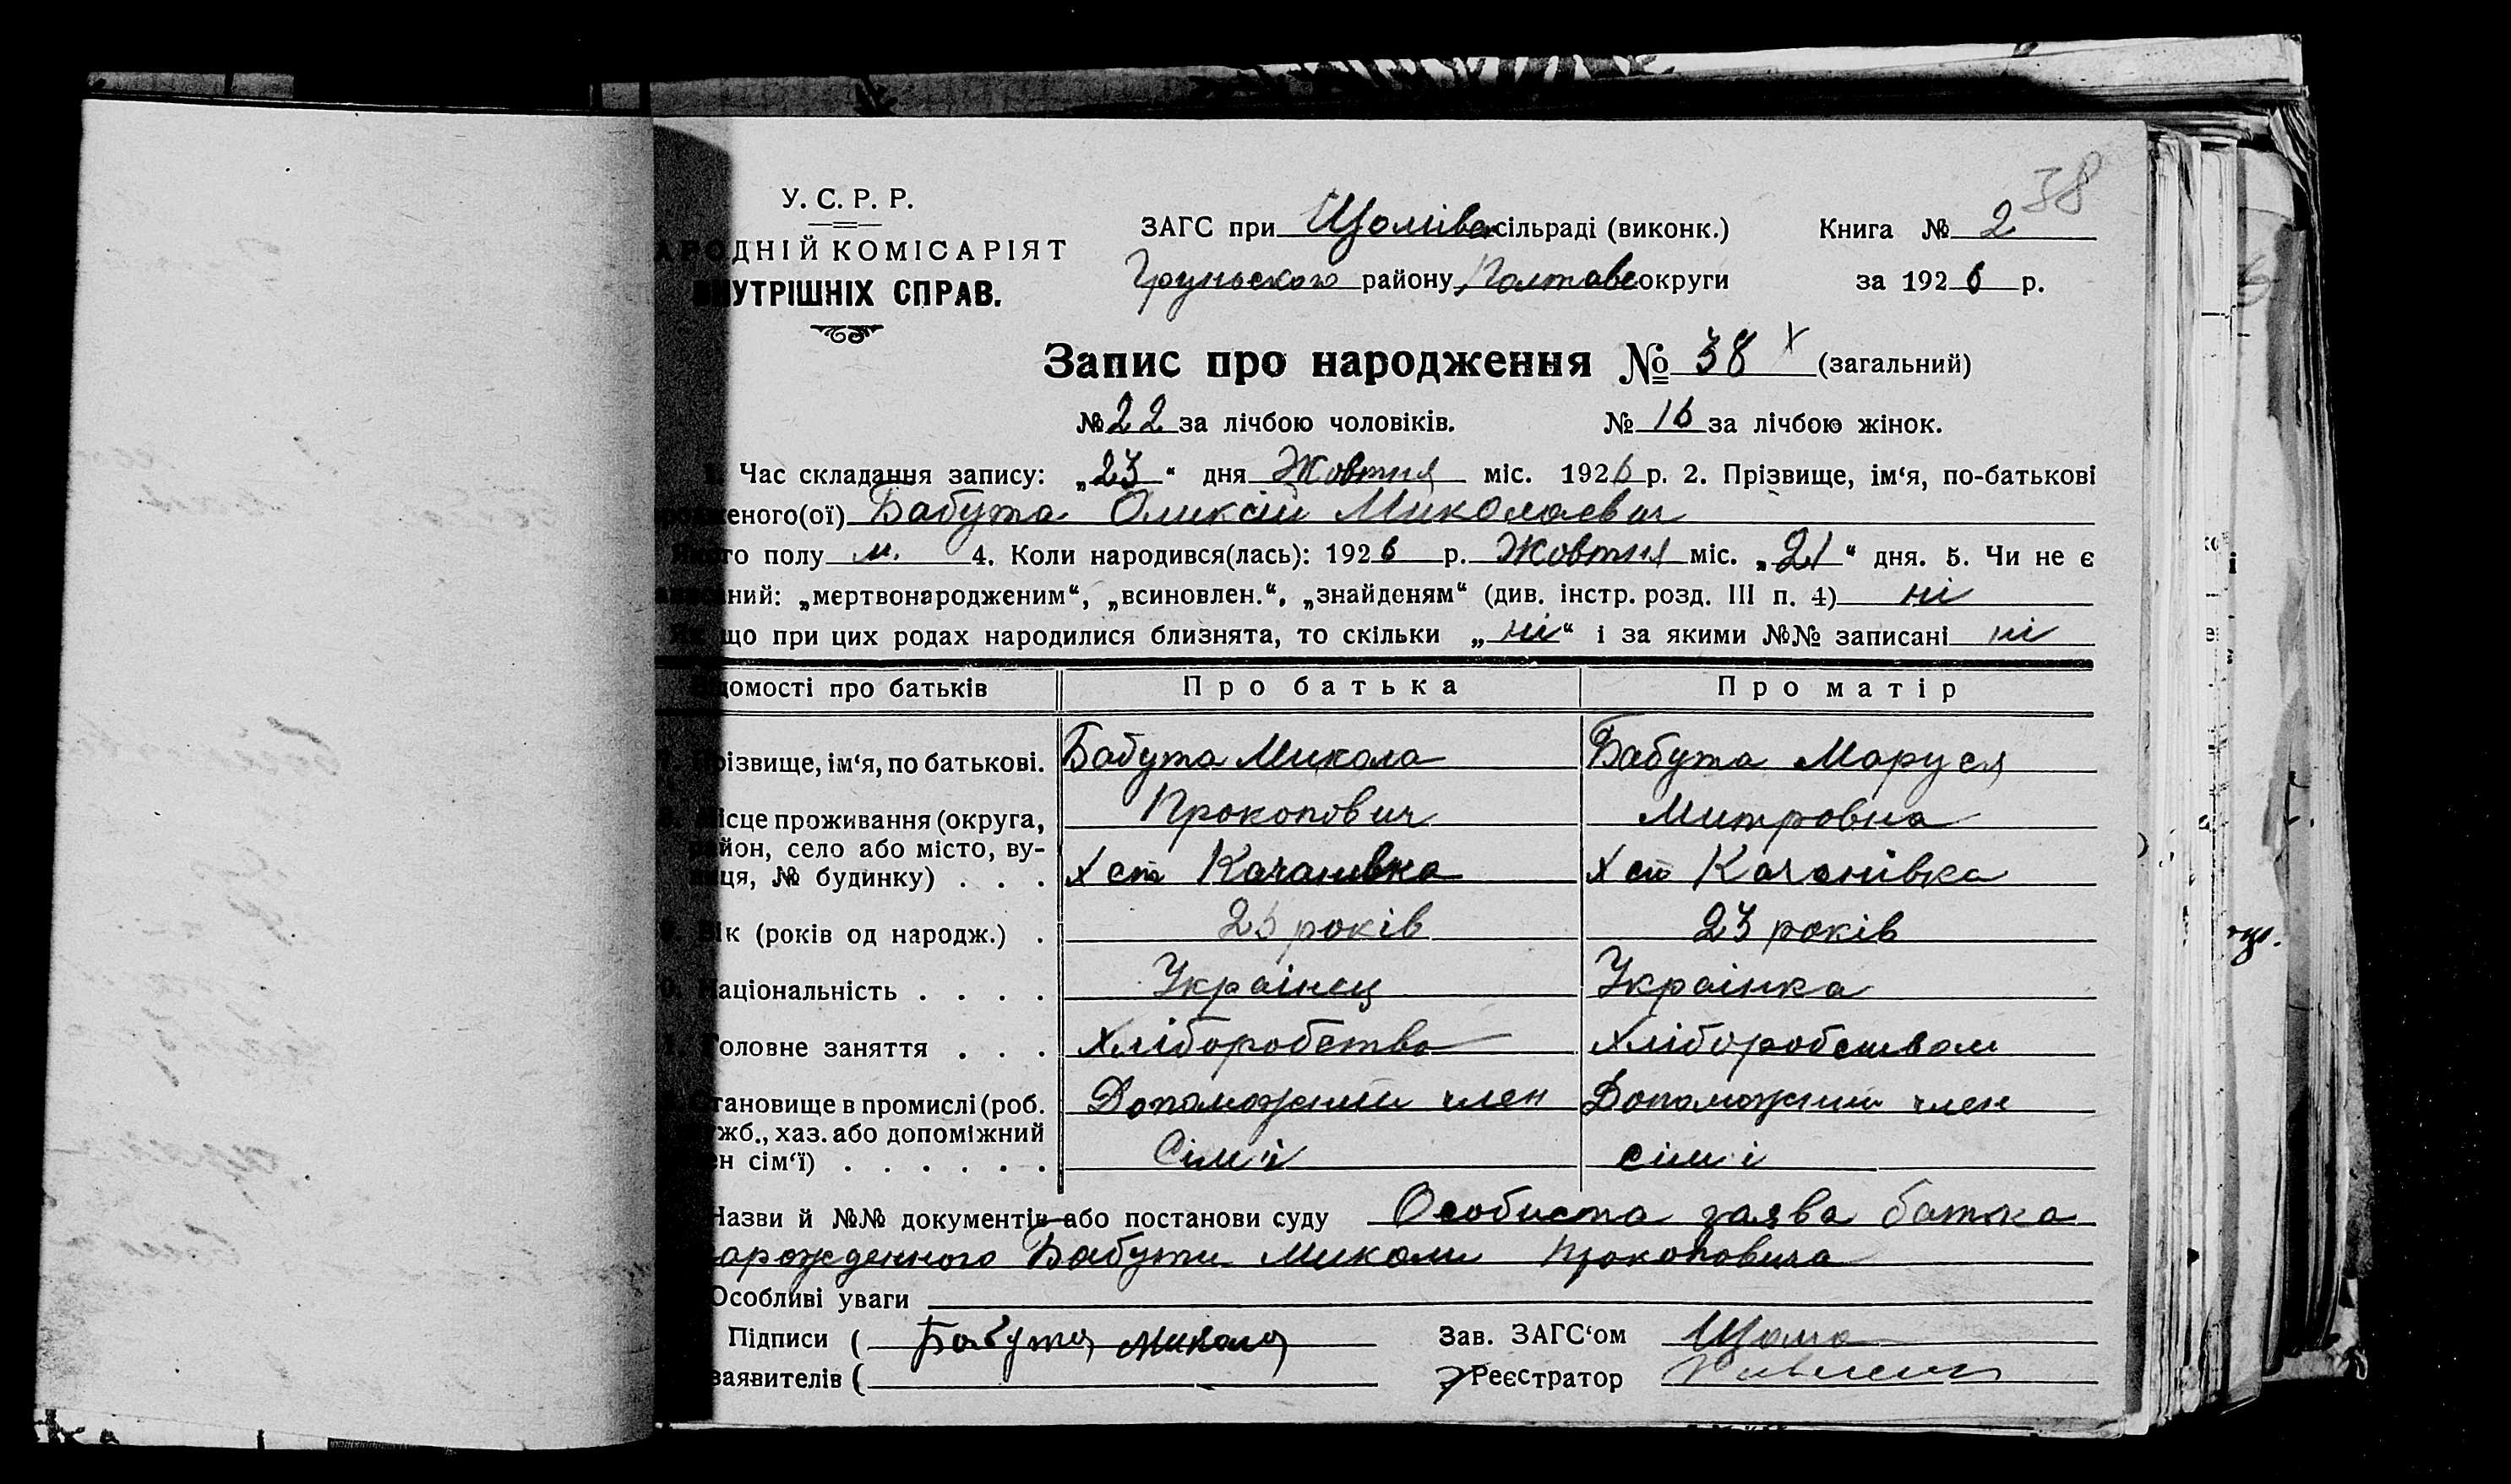 38
У. С. Р. Р.
АРОДНІЙ КОМІСАРІЯТ
ВНУТРІШНІХ СПРАВ.
ЗАГС при Щомівск сільраді (виконк.)
Книга № 2
Груньского району Полтавс округи
за 1926 р.
Запис про народження № 38 х (загальний)
№ 22 за лічбою чоловіків. № 16 за лічбою жінок.
1. Час складання запису: „23“ дня Жовтня міс. 1926 р. 2. Прізвище, ім‘я, по-батькові
женого(ої) Бабута Оликсій Миколаєвич
якого полу м. 4. Коли народився(лась): 1926 р. Жовтня міс. „21“ дня. 5. Чи не є
ний: „мертвонародженим“, „всиновлен.“, „знайденям“ (див. інстр. розд. III п. 4) ні
Якщо при цих родах народилися близнята, то скільки „ні“ і за якими №№ записані ні
ідомості про батьків Про батька Про матір
7. Прізвище, ім‘я, по батькові. Бабута Микола Бабута Маруся
Прокопович Митровна
8. Місце проживання (округа,
район, село або місто, ву-
лиця, № будинку) . . . Хст Качанівка Хст Качанівка
9. Вік (років од народж.) . 26 років 23 років
10. Національність . . . . Украінец Украінка
11. Головне заняття . . . Хліборобство Хліборобством
Становище в промислі (роб. Допоможний член Допоможний член
ужб., хаз. або допоміжний
ен сім‘ї) . . . . . . Сімʼі сімʼі
Назви й №№ документів або постанови суду Особиста заява батка
арожденного Бабути Миколи Прокоповича
Особливі уваги
Підписи ( Бабута Микола Зав. ЗАГС‘ом Щома
заявителів ( Реєстратор